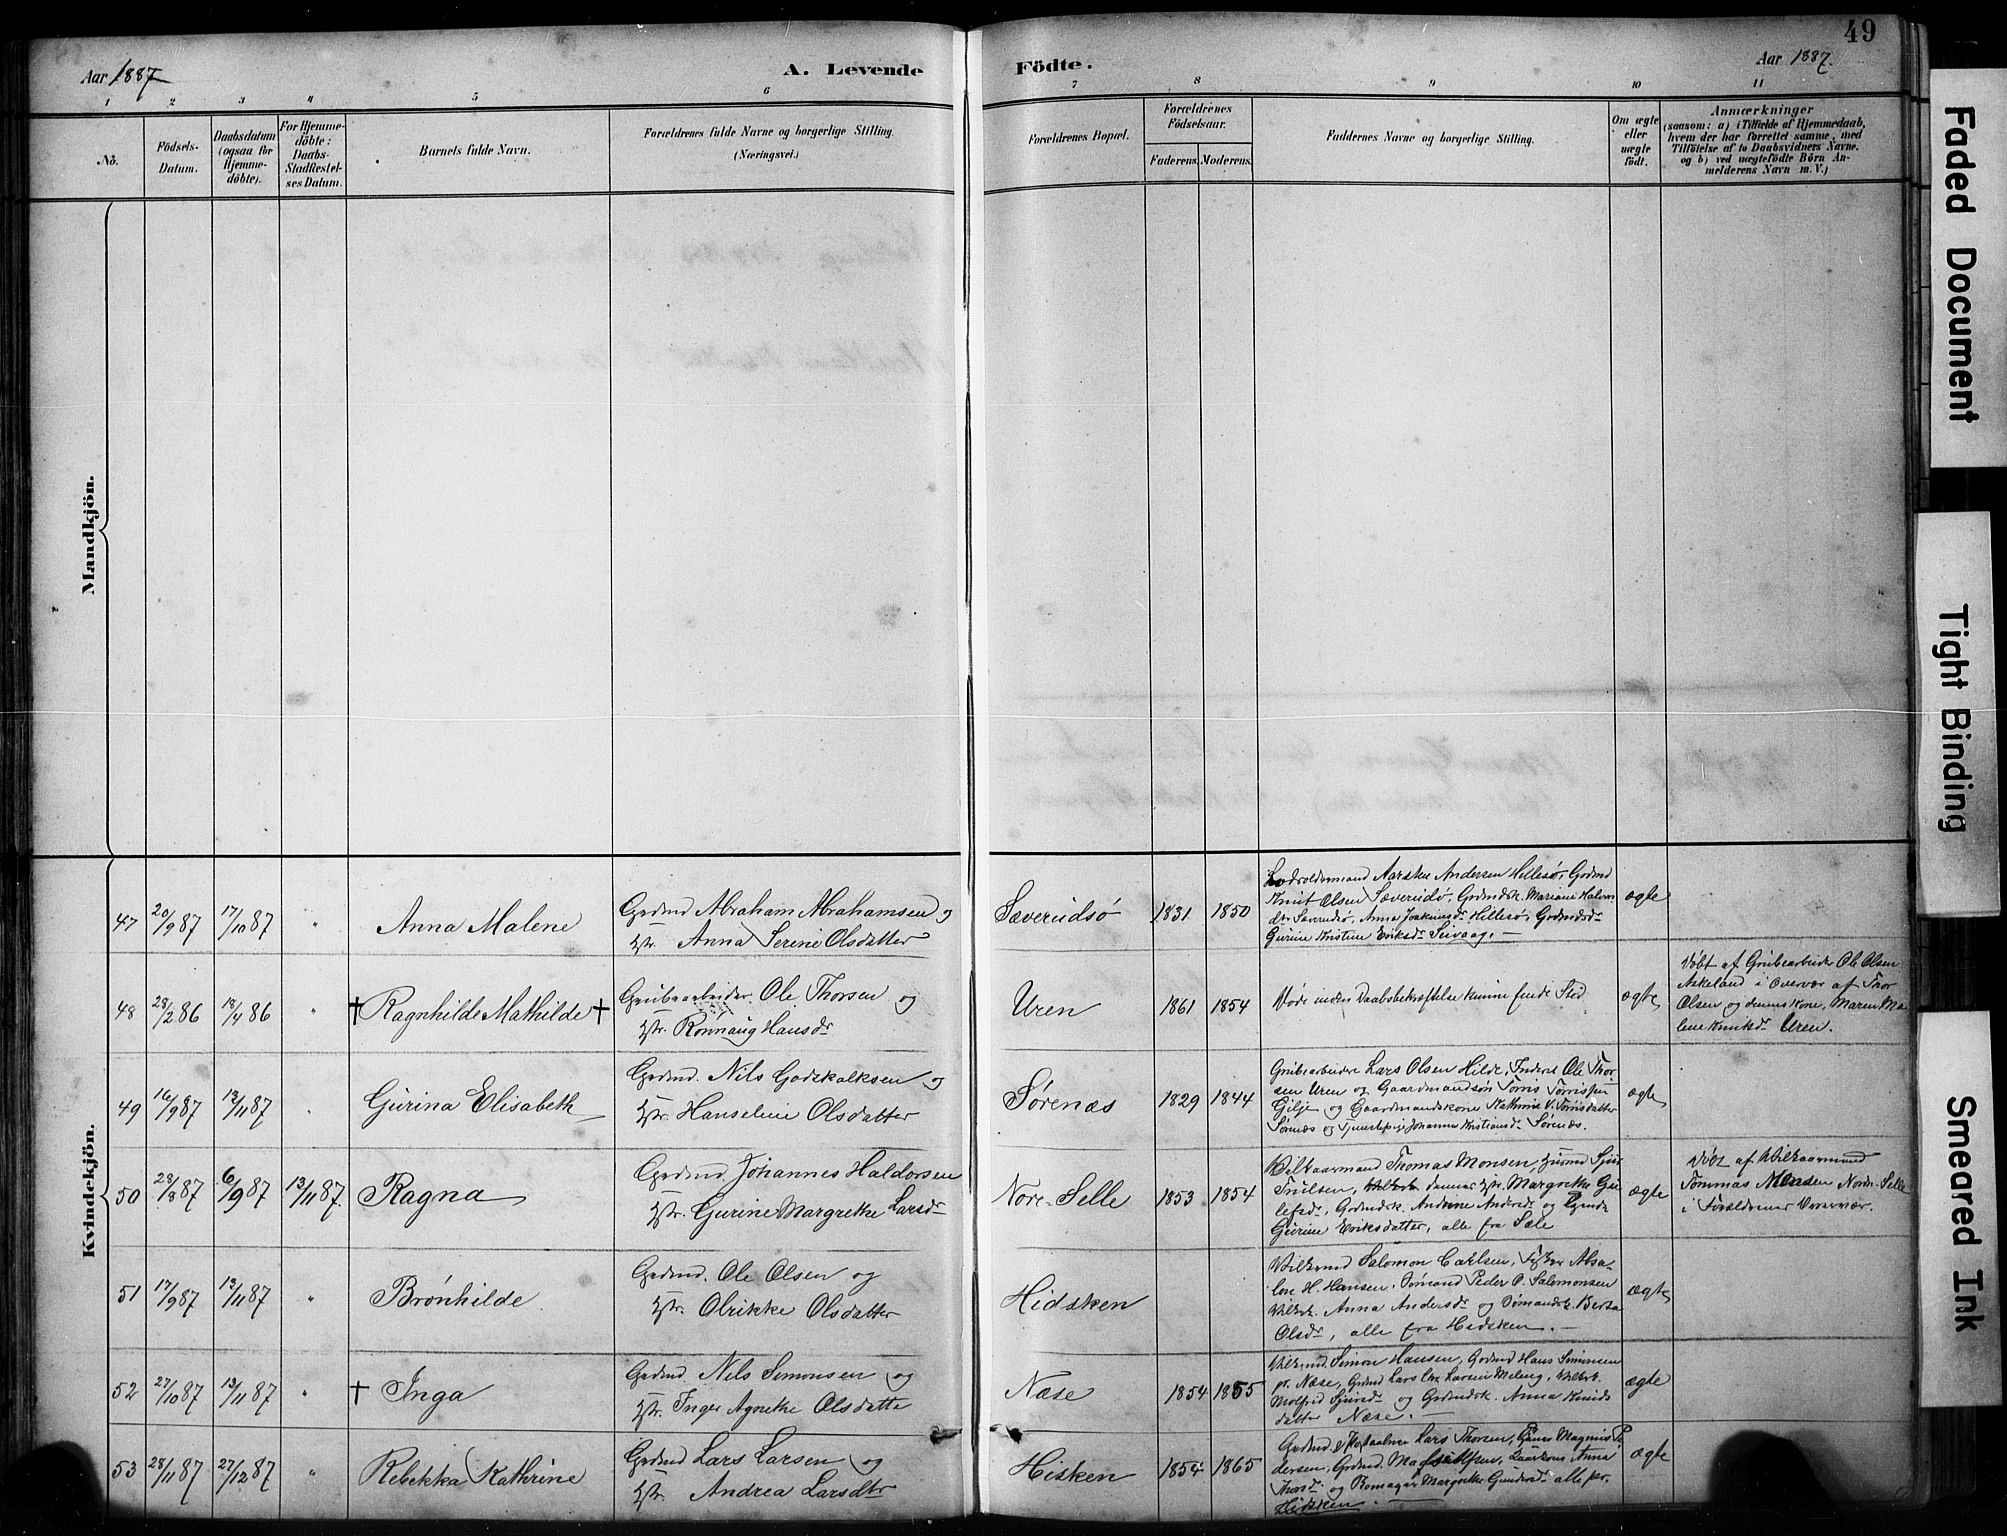 49
Aar 1887
A. Levende
Födte.
Aar 1887.
1 2 3 4 5 6 7 8 9 10 11
No.
Födsels-
Datum.
Daabsdatum
(ogsaa for
Hjemme-
döbte).
For Hjemme-
döbte:
Daabs-
Stadfæstel-
ses Datum.
Barnets fulde Navn.
Forældrenes fulde Navne og borgerlige Stilling.
(Næringsvei.)
Forældrenes Bopæl.
Forældrenes
Födselsaar.
Faderens. Moderens.
Faddernes Navne og borgerlige Stilling.
Om ægte
eller
uægte
födt.
Anmærkninger
(saasom: a) i Tilfælde af Hjemmedaab,
hvem der har forrettet samme, med
Tilföielse af to Daabsvidners Navne.
og b) ved uægtefödte Börn An-
melderens Navn m. V.)
Mandkjön.
Kvindekjön.
47 20/9 87 17/10 87 " Anna Malene
Grdmd Abraham Abrahamsen og
Hstr. Anna Serine Olsdatter
Sæverudsø 1831 1850
Aarsku Andersen Hillesø, Grdmd
Knut Olsen Sæverudsø, Grdmdsk. Mariane Halvors
dtr Sæverudsø, Anna Joakimsdr Hillesø, Grdmdsdr
Gurine Kristine Eriksdr Seivaag. —
ægte
48 28/2 86 18/4 86 " † Ragnhilde Mathilde †
Grubearbeider. Ole Thorsen og
Hstr. Rønnaug Hansdr
Uren 1861 1854
Døde inden Daabsbekræftelse kunne finde Sted
ægte
Døbt af Grubearbeider Ole Olsen
Askeland i Overvær af Thor
Olsen og dennes Kone, Maren Ma
lene Uren.
49 16/9 87 13/11 87 " Gurina Elisabeth
Grdmd. Nils Godskalksen og
Hstr. Hanseline Olsdatter
Sørenæs 1829 1844
Grubearbeidere Lars Olsen Hilde, Inders. Ole Thor
sen Uren og Gaardmandsøn Tørris Tørrissen
Gilje og Gaardmandskone Kathrine V. Tørrisdatter
Sørenæs og Tjenestepige Johanne Kristiansdr Sørenæs.
ægte
50 28/8 87 6/9 87 13/11 87. Ragna
Grdmd. Johannes Haldorsen
Hstr. Gurine Margrethe Larsdr
Nore-Selle 1853 1854
Vilkaarmand Thomas Monsen,
dennes Hstr. Margrethe Gu
lefsdr, Grdmdsk. Andrine Andrsdr og
Gurine Eriksdatter, alle fra Sæle
ægte
Døbt af Vilkaarmand
Tommas Monsen Nordre-Selle
i Forældrenes Overvær.
51 17/9 87 13/11 87 " Brønhilde
Grdmd. Ole Olsen og
Hstr. Olrikke Olsdatter
Hidsken
Vilkrmd Salomon Carlsen, Absa-
lon H. Hansen. Sømand Peder O. Salomonsen
Vilkrk. Anna Andersdr og Sømandsk. Berta
Olsdr, alle fra Hidsken. —
ægte
52 27/10 87 13/11 87 " † Inga
Grdmd. Nils Simonsen og
Hstr. Inger Agnethe Olsdatte
Næse 1854 1855
Vilkrmd. Simon Hansen, Grdmd Hans Simonsen
pr. Næse, Grdmd Lars Meling, Vilkrk.
Molfrid Sjursdr og Grdmdsk. Anna Knuds
datter Næse. —
ægte
53 28/11 87 27/12 87 " Rebekka Kathrine
Grdmd Lars Larsen og
Hstr. Andrea Larsdtr
Hisken 1854 1865
Grdmd. Lars Thorsen, Magnus Pe
dersen, Grdmd. Anna
Thorsdr og Margrethe Gundersdr alle pr.
Hidsken. —
ægte
Faded Document
Tight Binding
Smeared Ink